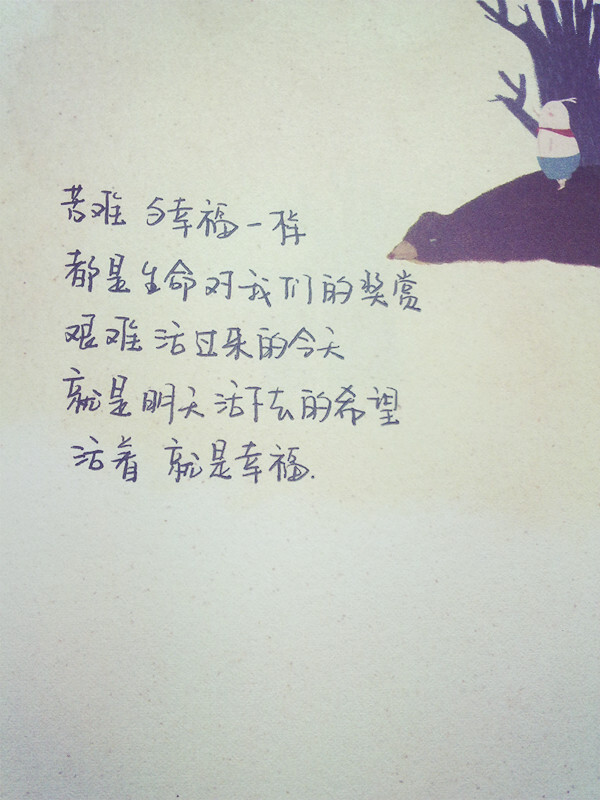 苦难 与幸福一样
都是生命对我们的奖赏
艰难活过来的今天
就是明天活下去的希望
活着 就是幸福.